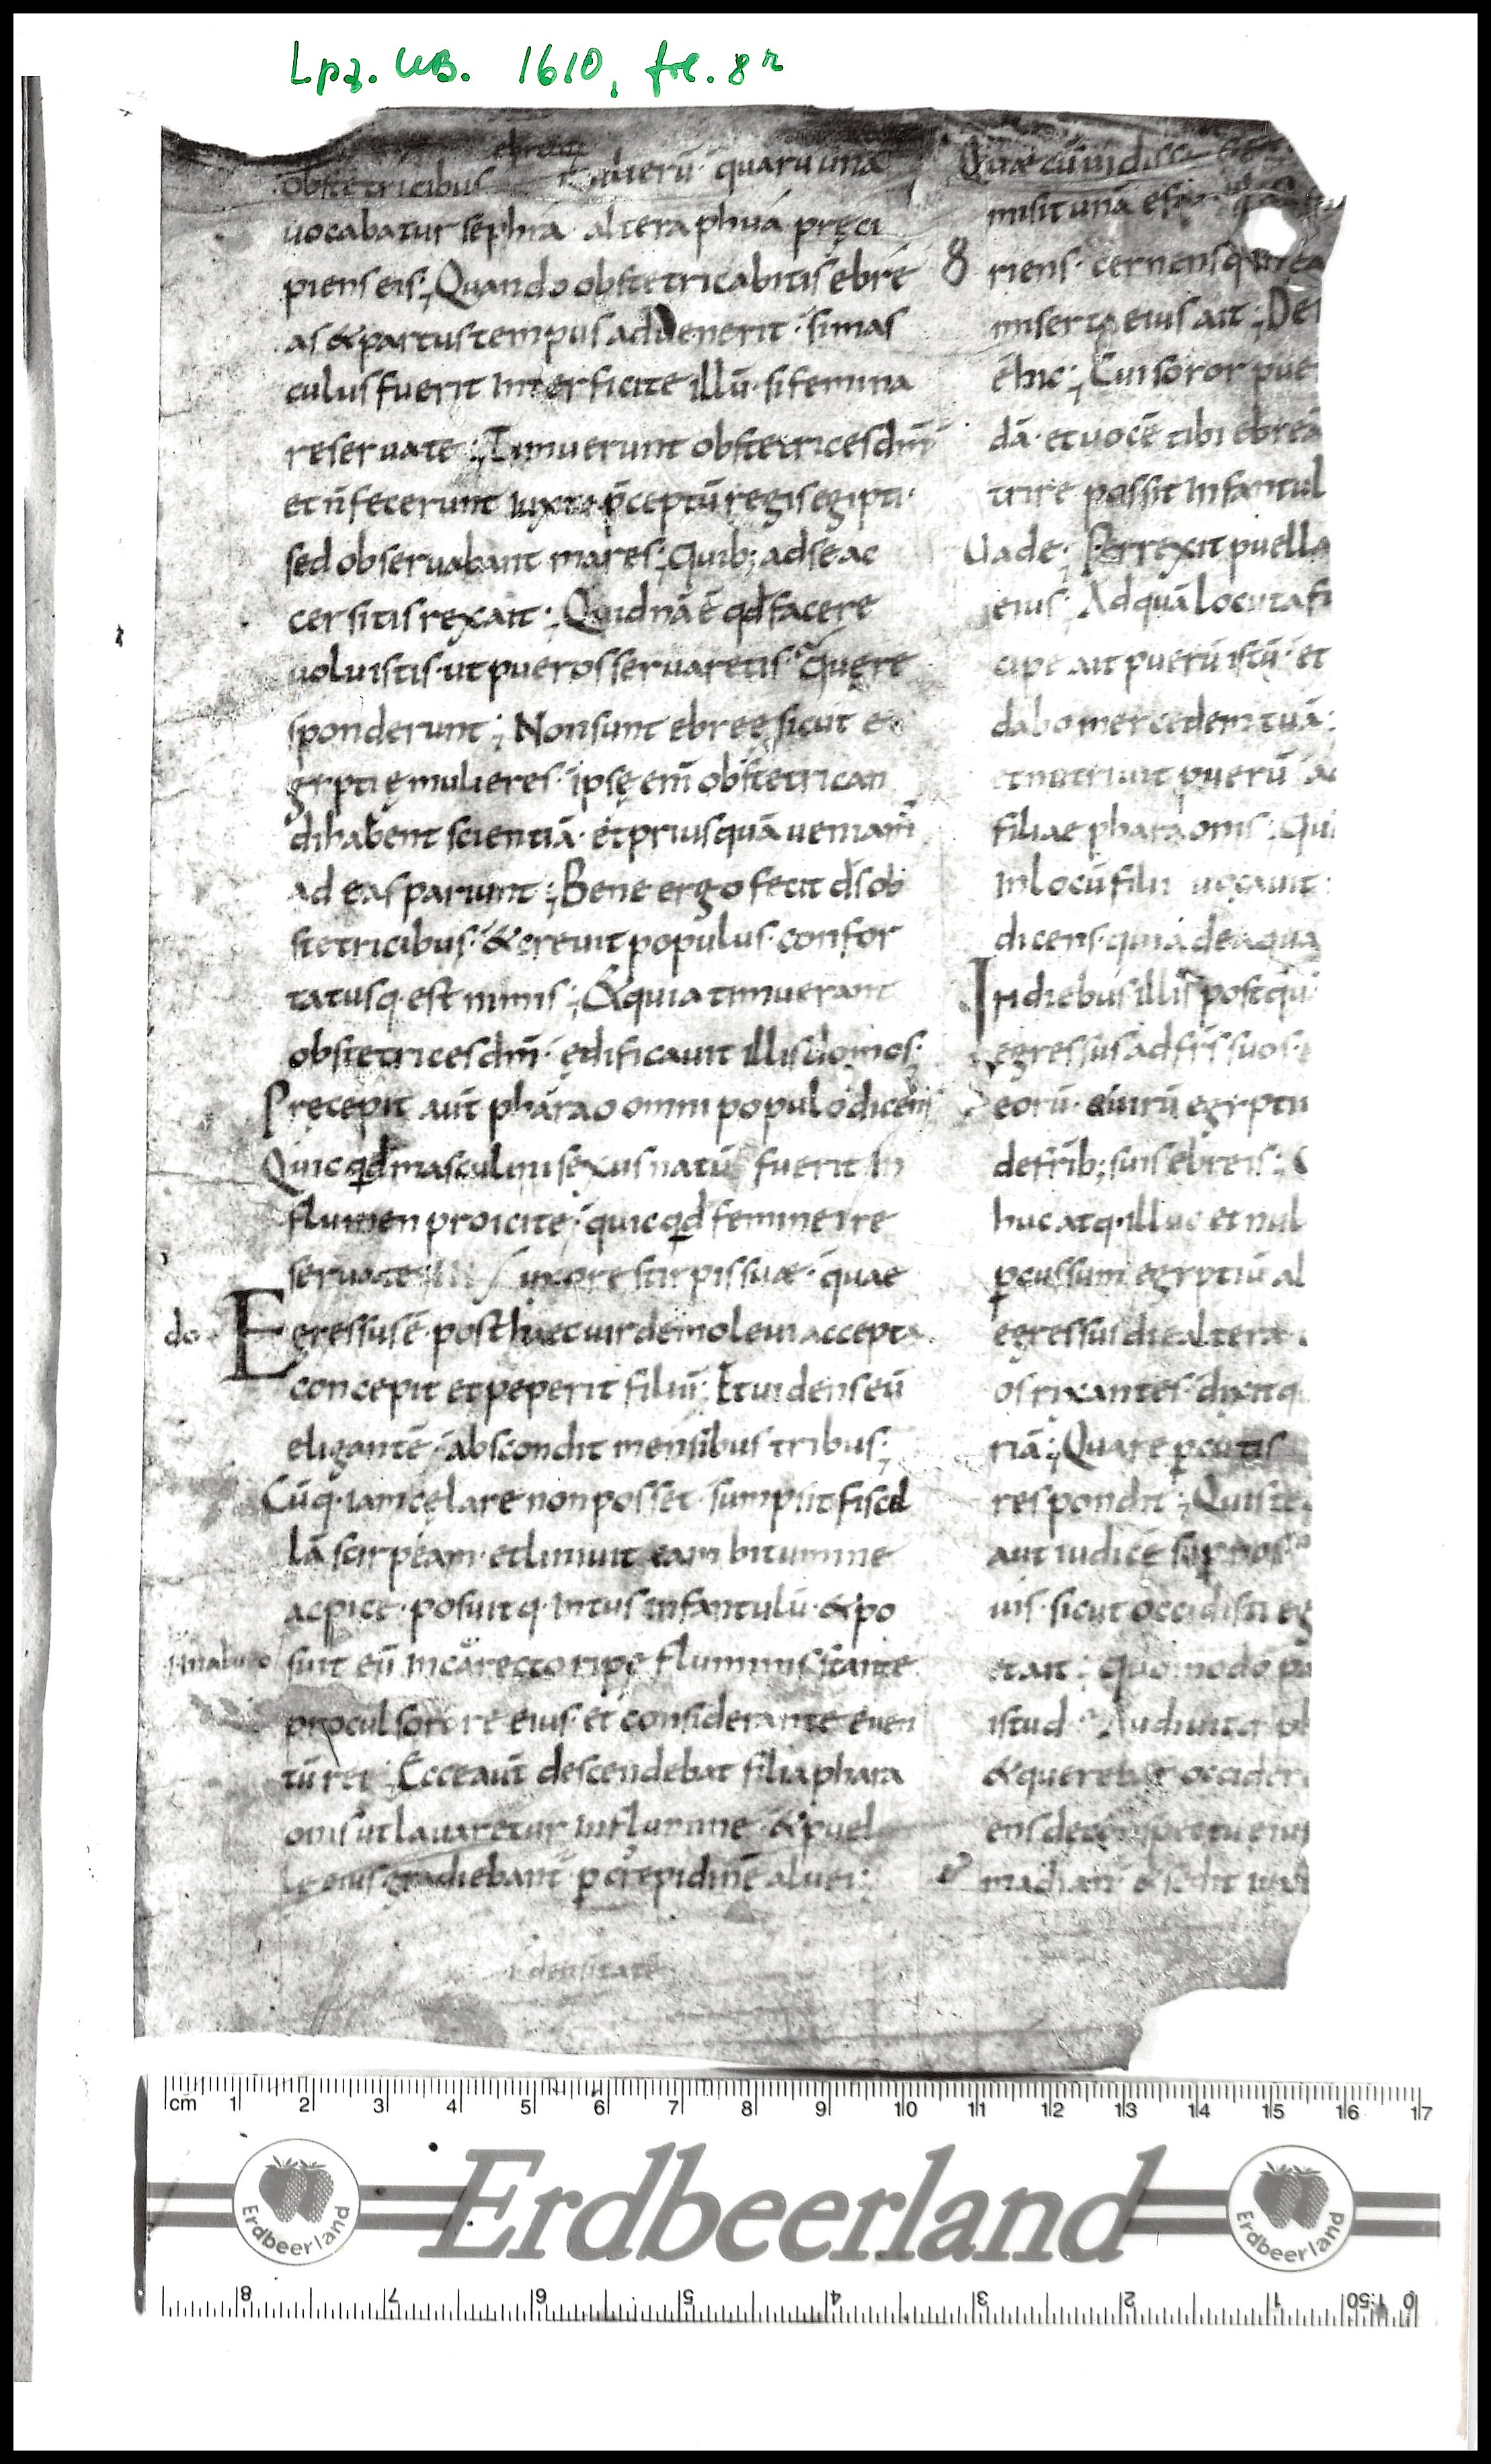 Lpz. UB. 1610, fre. 8r
ebreaꝝ
obstetricibus mulierū· quarū una
uocabatur sephra· altera phua· pręci
piens eis; Quando obstetricabitis ebre
as & partus tempus aduenerit· si mas
culus fuerit interficite illū· si femina
reseruate; Timuerunt obstetrices dm̄
et n̄ fecerunt iuxta p̄ceptū regis egipti·
sed obseruabant mares; Quib; ad se ac
cersitis rex ait; Quidnā ē qđ facere
uoluistis· ut pueros seruaretis· Quę re
sponderunt; Non sunt ebreę sicut e
gyptię mulieres· ipsę eni̅ obstetrican
di habent scientiā· et priusquā ueniam̄
ad eas pariunt; Bene ergo fecit ds̄ ob
stetricibus· & creuit populus· confor
tatusq· est nimis; & quia timuerant
obstetrices dm̄· ędificauit illis domos;
Pręcepit aut̄ pharao omni populo dicens
Quicqđ masculini sexus natū fuerit in
flumen proicite· quicqđ feminei re
seruate uxore stirpis suæ· quae
do E gressus ē· post haec uir de mo leui accepta
concepit et peperit filiū; Et uidens eū
elegantē· abscondit mensibus tribus;
Cūq· iam cęlare non posset· sumpsit fiscel
lā scirpeam· et liniuit eam bitumine
ac pice· posuitq· intus infantulū· & po
suit eū in carecto ripę fluminis stante
procul sorore eius· et considerante euen
tū rei; Ecce aut̄ descendebat filia phara
onis ut lauaretur in flumine· & puel
lę eius gradiebant̄ p crepidinē aluei;
i densitate
Quae cū uidisset
misit unā e
8 riens· cernensq· in ea
miserta eius ait; De i
ē hic; Cui soror pue
dā· et uocē tibi ebreā
trire possit infantul
Uade· Perrexit puella
eius; Ad quā locuta fi
cipe ait puerū istū· et
dabo mercedem tuā·
et nutriuit puerū· ad
filiae pharaonis· Qu
in locū filii uocauit·
dicens· quia de aqua
In diebus illis postqu
egressus ad frs̄ suos·
eorū· & uirū egyptiu
de frib; suis ebreis;
huc atq· illuc et nul
pcussum egyptiū al
egressus die altera·
os rixantes· dixitq·
riā; Quare pcutis
respondit; Quis te
aut iudicē sup nos·
uis· sicut occidisti eg
et ait; Quomodo pa
istud· Audiuitq· ph
& querebat occidere
ens de conspectu eius
madian· & sedit iuxt
cm 1 2 3 4 5 6 7 8 9 10 11 12 13 14 15 16 17
Erdbeerland
Erdbeerland
Erdbeerland
8 7 6 5 4 3 2 1 1:50 0